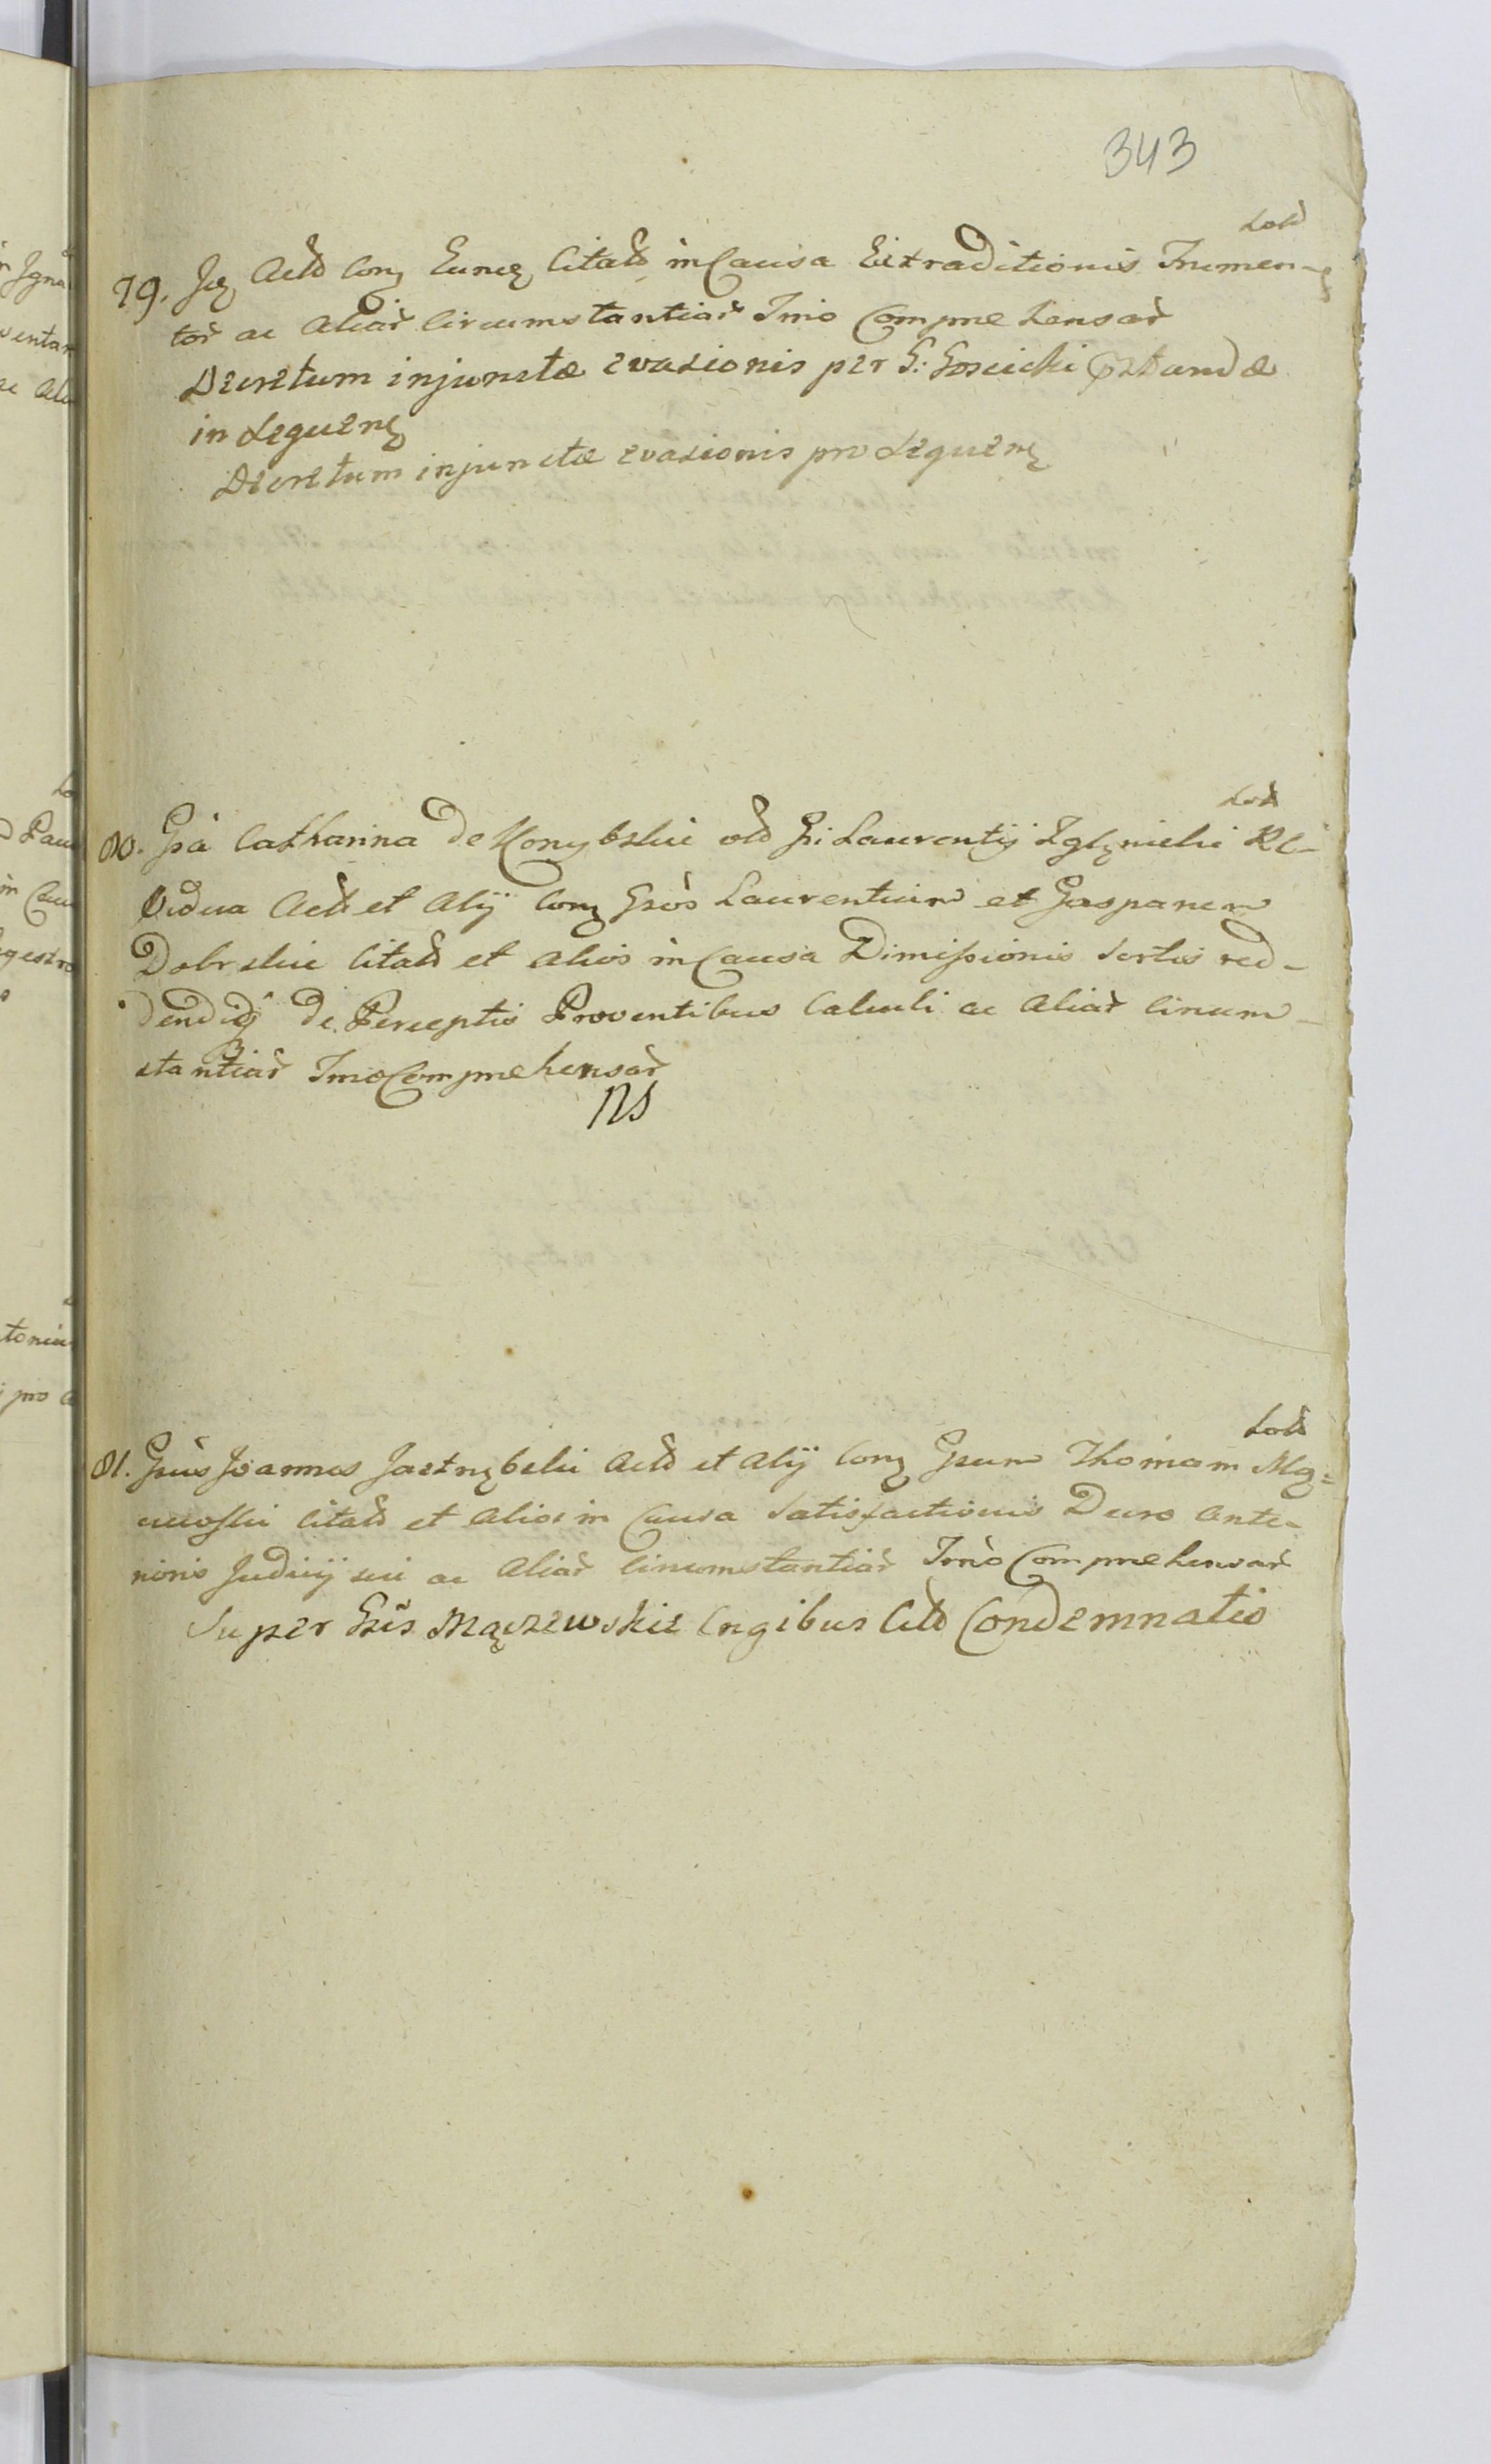 343
Lotd
79. Jz Actd Conz Eunez Citatd in Causa Extraditionis Frumen-
tor ac Aliar Circumstantiar Tmio Comprehensar
Decretum injunctæ evasionis per G: Goscicki præstandæ
in Sequenz
Decretum injunctæ evasionis pro Sequenz
Lotd
80. Gsa Catharina de old Gsi Laurentij Zglynicki Rl-
Vidua Actd et Alÿ Conz Gsos Laurentium et Gasparem
Dobrskie Citatd et Alios in Causa Dimissionis Sortis red-
dendiq de Perceptis Proventibus Calculi ac Aliar Circum-
stantiar Tmio Comprehensar
NS
Lotd
81. Gsus Joannes Jastrzbski Actd et Alÿ Conz Gsum Thomam Mą-
czewski Citatd et Alios in Causa Satisfactionis Decro Ante-
rioris Judicÿ sui ac Aliar Circumstantiar Tmio Comprehensar
Super Gsis Mączewskie Cngibus Citd Condemnatio